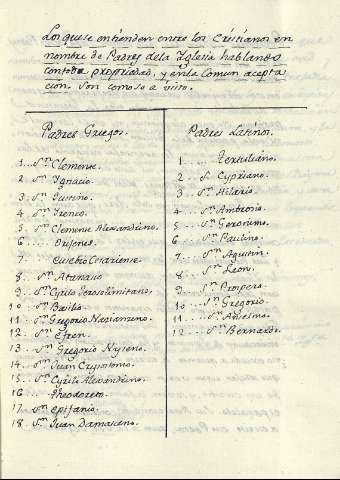 Los que se entienden entre los Cristianos en
nombre de Padres dela Yglesia hablando
con toda propriedad, y en la comun acepta
cion. son como se a visto.
Padres Griegos.
1... Sn Clemente.
2.. Sn Ignacio.
3.. Sn Justino.
4.. Sn Ireneo.
5.. Sn Clemente Alexandrino.
6..... Orijenes.
7.. Eusebio Cesariense.
8... Sn Atanacio
9.. Sn Cyrilo Jerosolimitano.
10.. Sn Basilio.
11.. Sn Gregorio Nazianzeno.
12... Sn Efren.
13... Sn Gregorio Nyseno.
14.. Sn Juan Crysostomo.
15.. Sn Cyrilo Alexandrino.
16.. Theodoreto.
17.. Sn Epifanio.
18.. Sn Juan Damasceno.
Padres Latinos.
1.... Tertuliano.
2.. S. Cypriano.
3.. Sn Hilario.
4.. Sn Ambrosio.
5.. Sn Geronimo.
6.. Sn Paulino.
7... Sn Agustin.
8.. Sn Leon.
9.. Sn Prospero.
10.. Sn Gregorio.
11... Sn Anselmo.
12... Sn Bernardo.